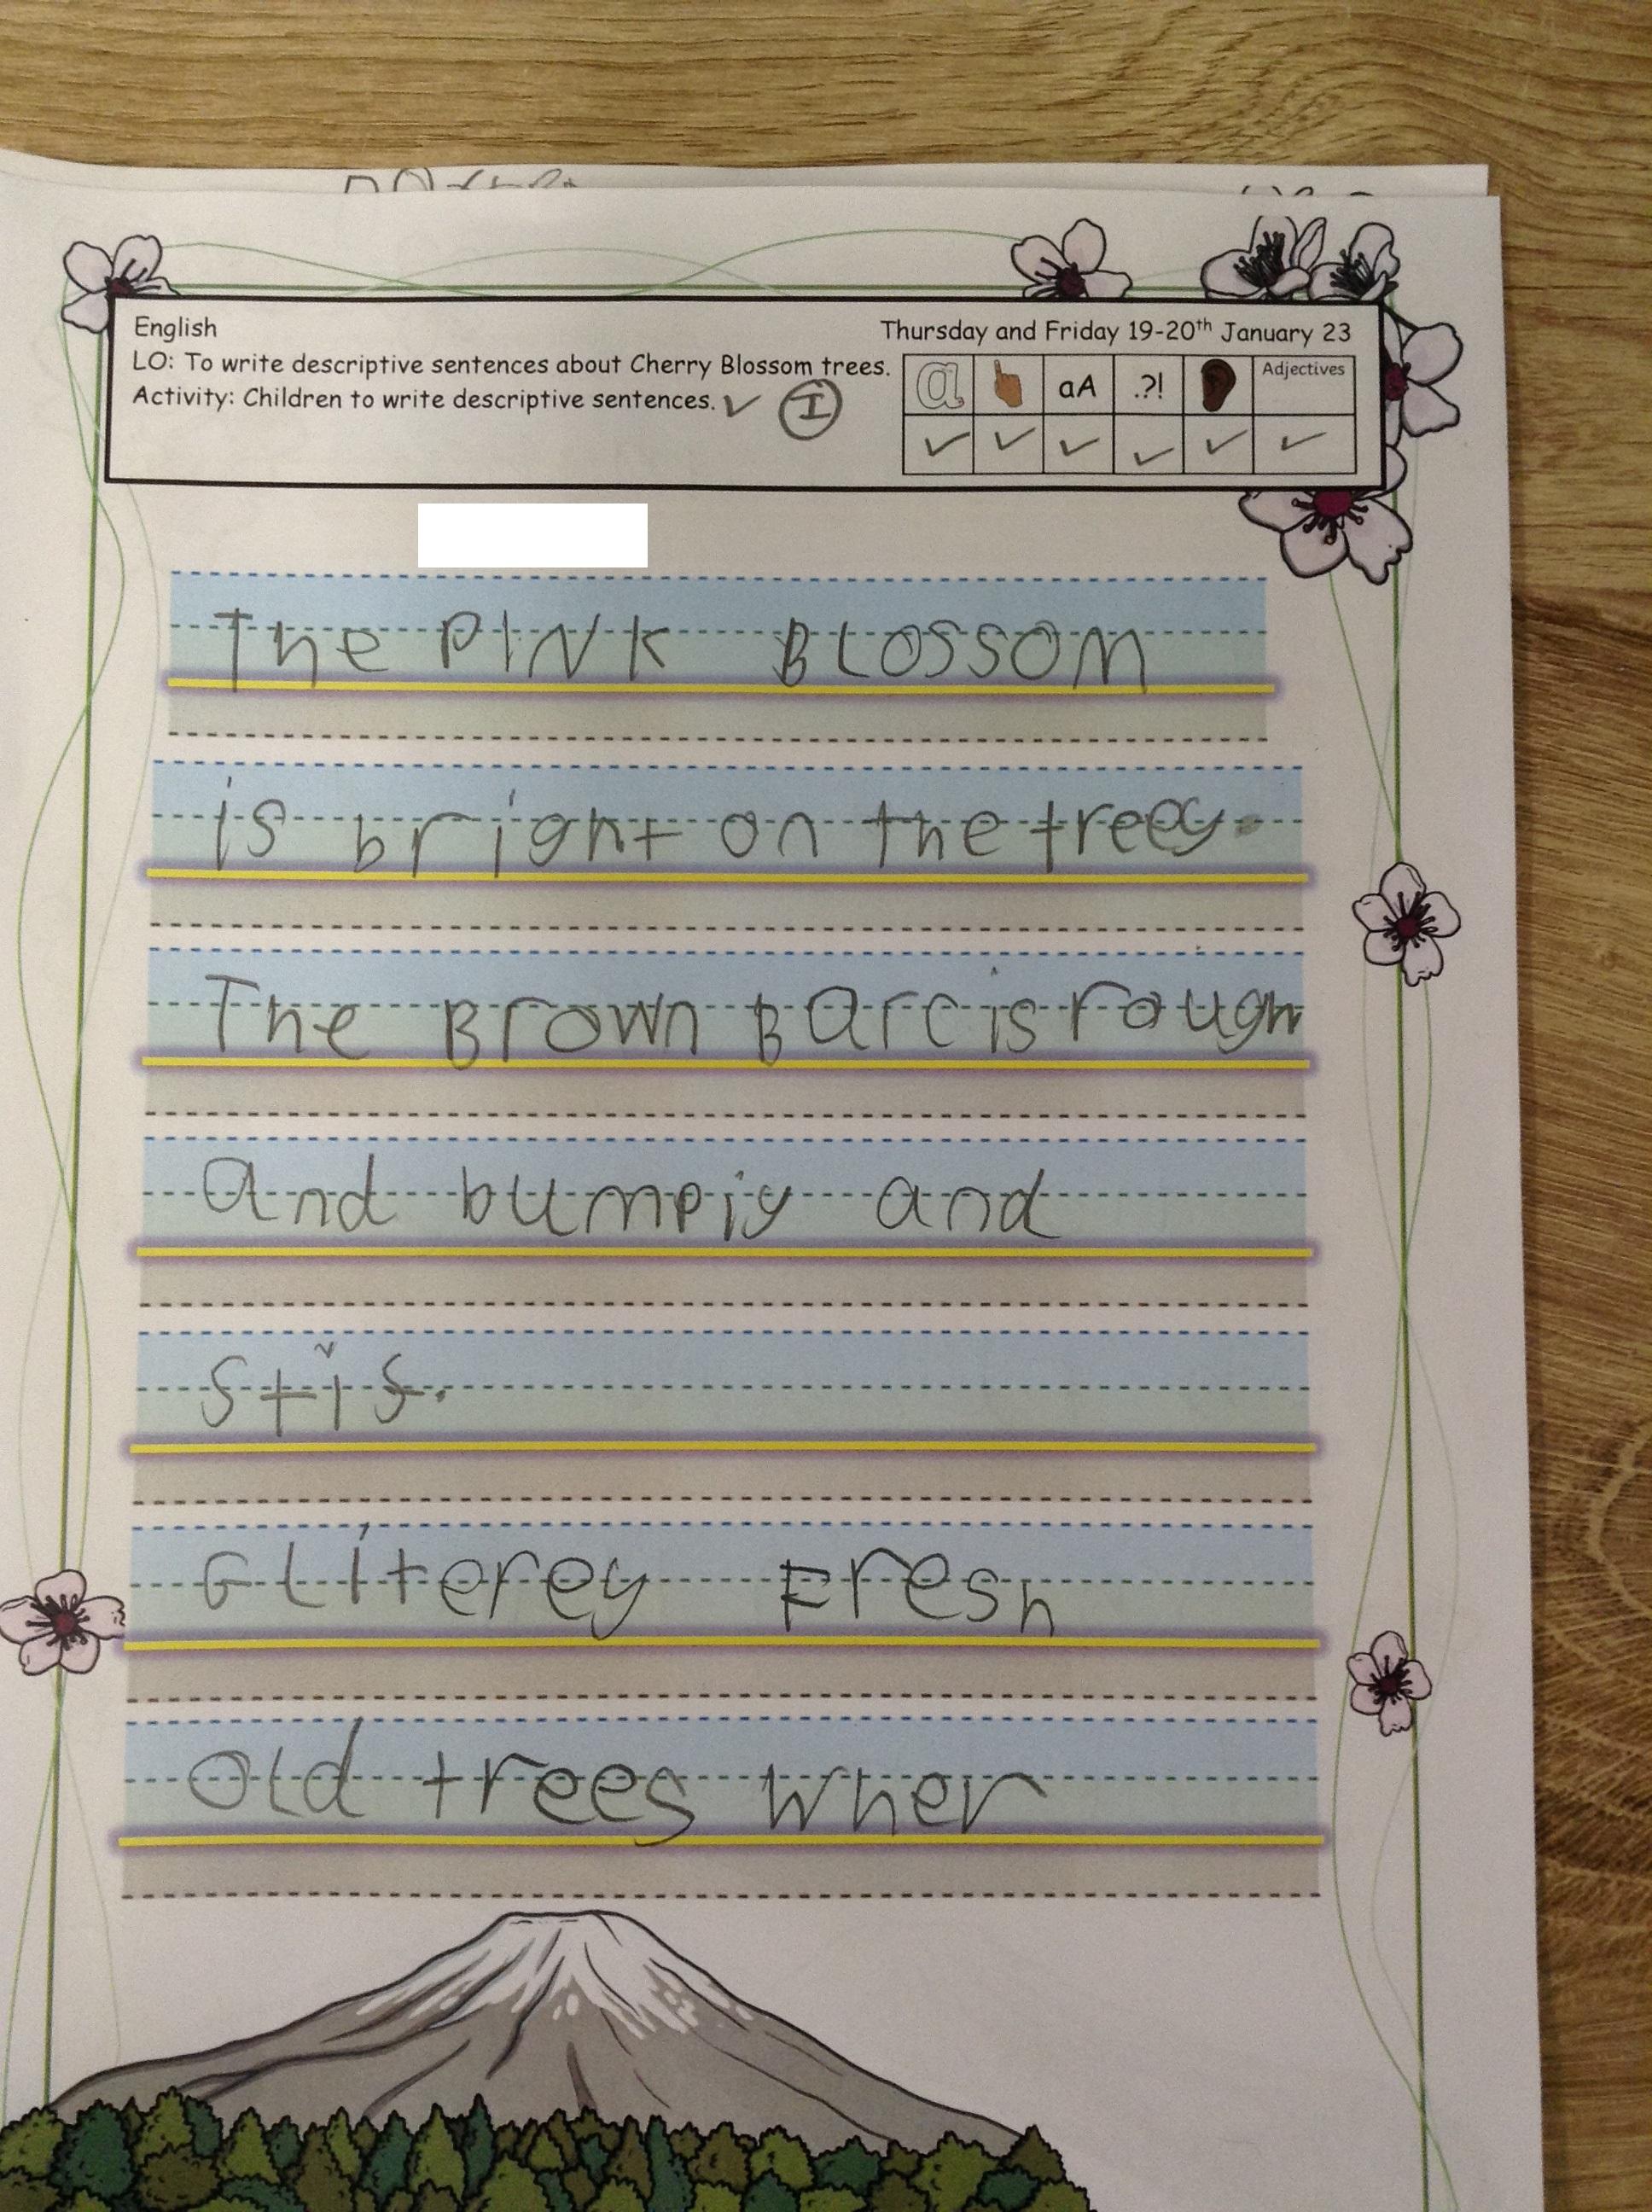 English
Thursday and Friday 19-20th January 23
LO: To write descriptive sentences about Cherry Blossom trees.
Activity: Children to write descriptive sentences. ✓ I
a aA .?! Adjectives
✓ ✓ ✓ ✓ ✓ ✓
The PINK BLOSSOM
is bright on the trees.
The Brown Barc is rough
and bumpiy and
stif.
GLiterey Fresh
Old trees wher